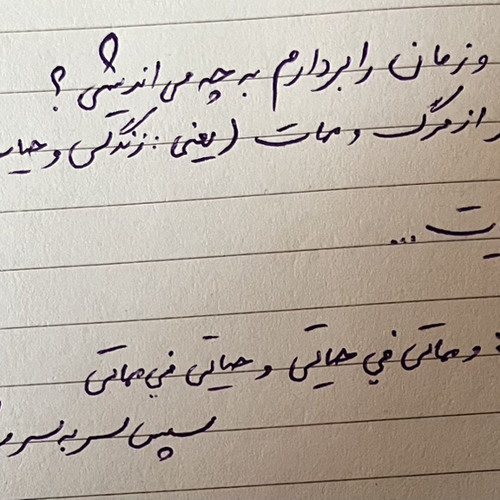 و زمان را بردارم به چه می اندیشی ؟
از مرگ و ممات (یعنی : زندگی و حیا
ت ...
و مماتی في حیاتي و حیاتي في مماتي
سپس سر به سر و